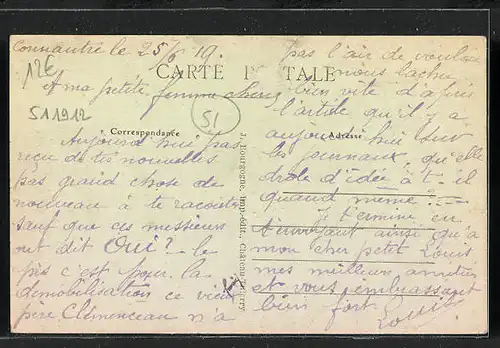 Connantre le 25/6 19.
12€
CARTE POSTALE
A ma petite femme cherie
51
511912
Correspondance
Adresse
Aujourd'hui pas
reçu de tes nouvelles
pas grand chose de
nouveau à te raconter
sauf que ces messieurs
ont dit Oui? - le
pis c'est pour la
demobilisation ce vieux
pere Clemenceau n'a
J. Bourgogne, imp.-édit., Château-Thierry
pas l'air de vouloir
nous lacher
bien vite d'après
l'article qu'il y a
aujourd'hui sur
les journaux, qu'elle
drole d'idée a t-il
quand même? --
Je termine en
t'envoyant ainsi qu'a
mon cher petit Louis
mes meilleurs amitiés
et vous embrassant
bien fort
Louis